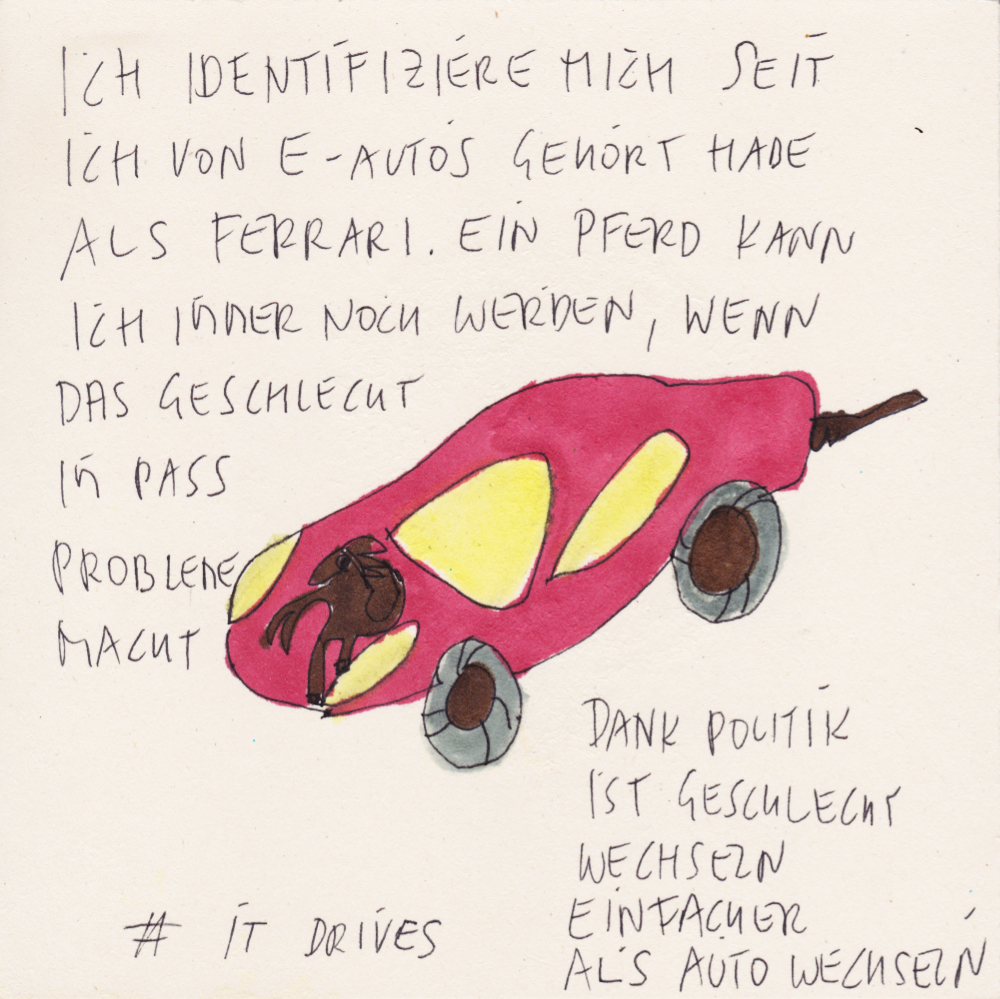 ICH IDENTIFIZIERE MICH SEIT
ICH VON E-AUTOS GEHÖRT HABE
ALS FERRARI. EIN PFERD KANN
ICH IMMER NOCH WERDEN, WENN
DAS GESCHLECHT
IM PASS
PROBLEME
MACHT
DANK POLITIK
IST GESCHLECHT
WECHSELN
EINFACHER
ALS AUTO WECHSELN
# IT DRIVES